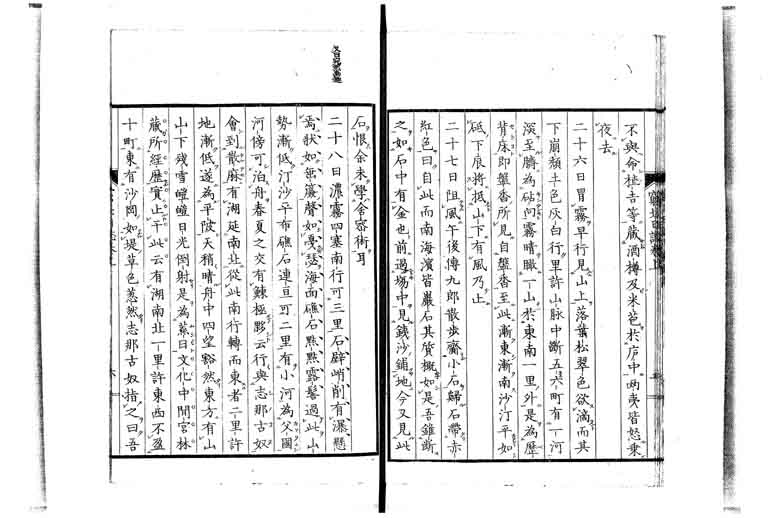 不與命桂吉等藏酒樽及米苞於庐中両夷皆怒乗
夜去
二十六日冒霧早行見山上落葉松翠色欲滴而其
下崩頽土色灰白行一里許山脉中断五六町有一河
深至臍為砧何霧晴瞰一山於東南一里外是為歴
背床即盤香所見自盤香至此漸東漸南沙汀平如
砥下泉将抵山下有風乃止
二十七日阻風午後傳九郎散歩齎小石歸石帶赤
紅色曰自此而南海濱皆巖石其質概如是吾錐断
之如石中有金也前過場中見銭沙鋪地今又見此
石恨余未學舍密術耳
二十八日濃霧四塞南行可三里石壁峭削有瀑懸
焉狀如垂簾聲如戛瑟海面礁石點點露髻過此山
勢漸低汀沙平布礁石連亘可二里有小河為父園
河傍可泊舟春夏之交有鰊極夥云行與志那古奴
會到散麻有湖延南北從此南行轉而東者二里許
地漸低遂為平陂天稍晴舟中四望豁然東方有山
山下残雪皚皚日光倒射是為幕日文化中間宮林
蔵所經歴實止于此云有湖南北一里許東西不盈
十町東有沙岡如堤草色葱然志那古奴指之曰吾